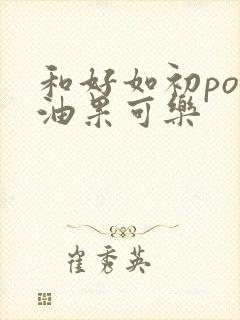 和好如初po
油果可樂
崔秀英